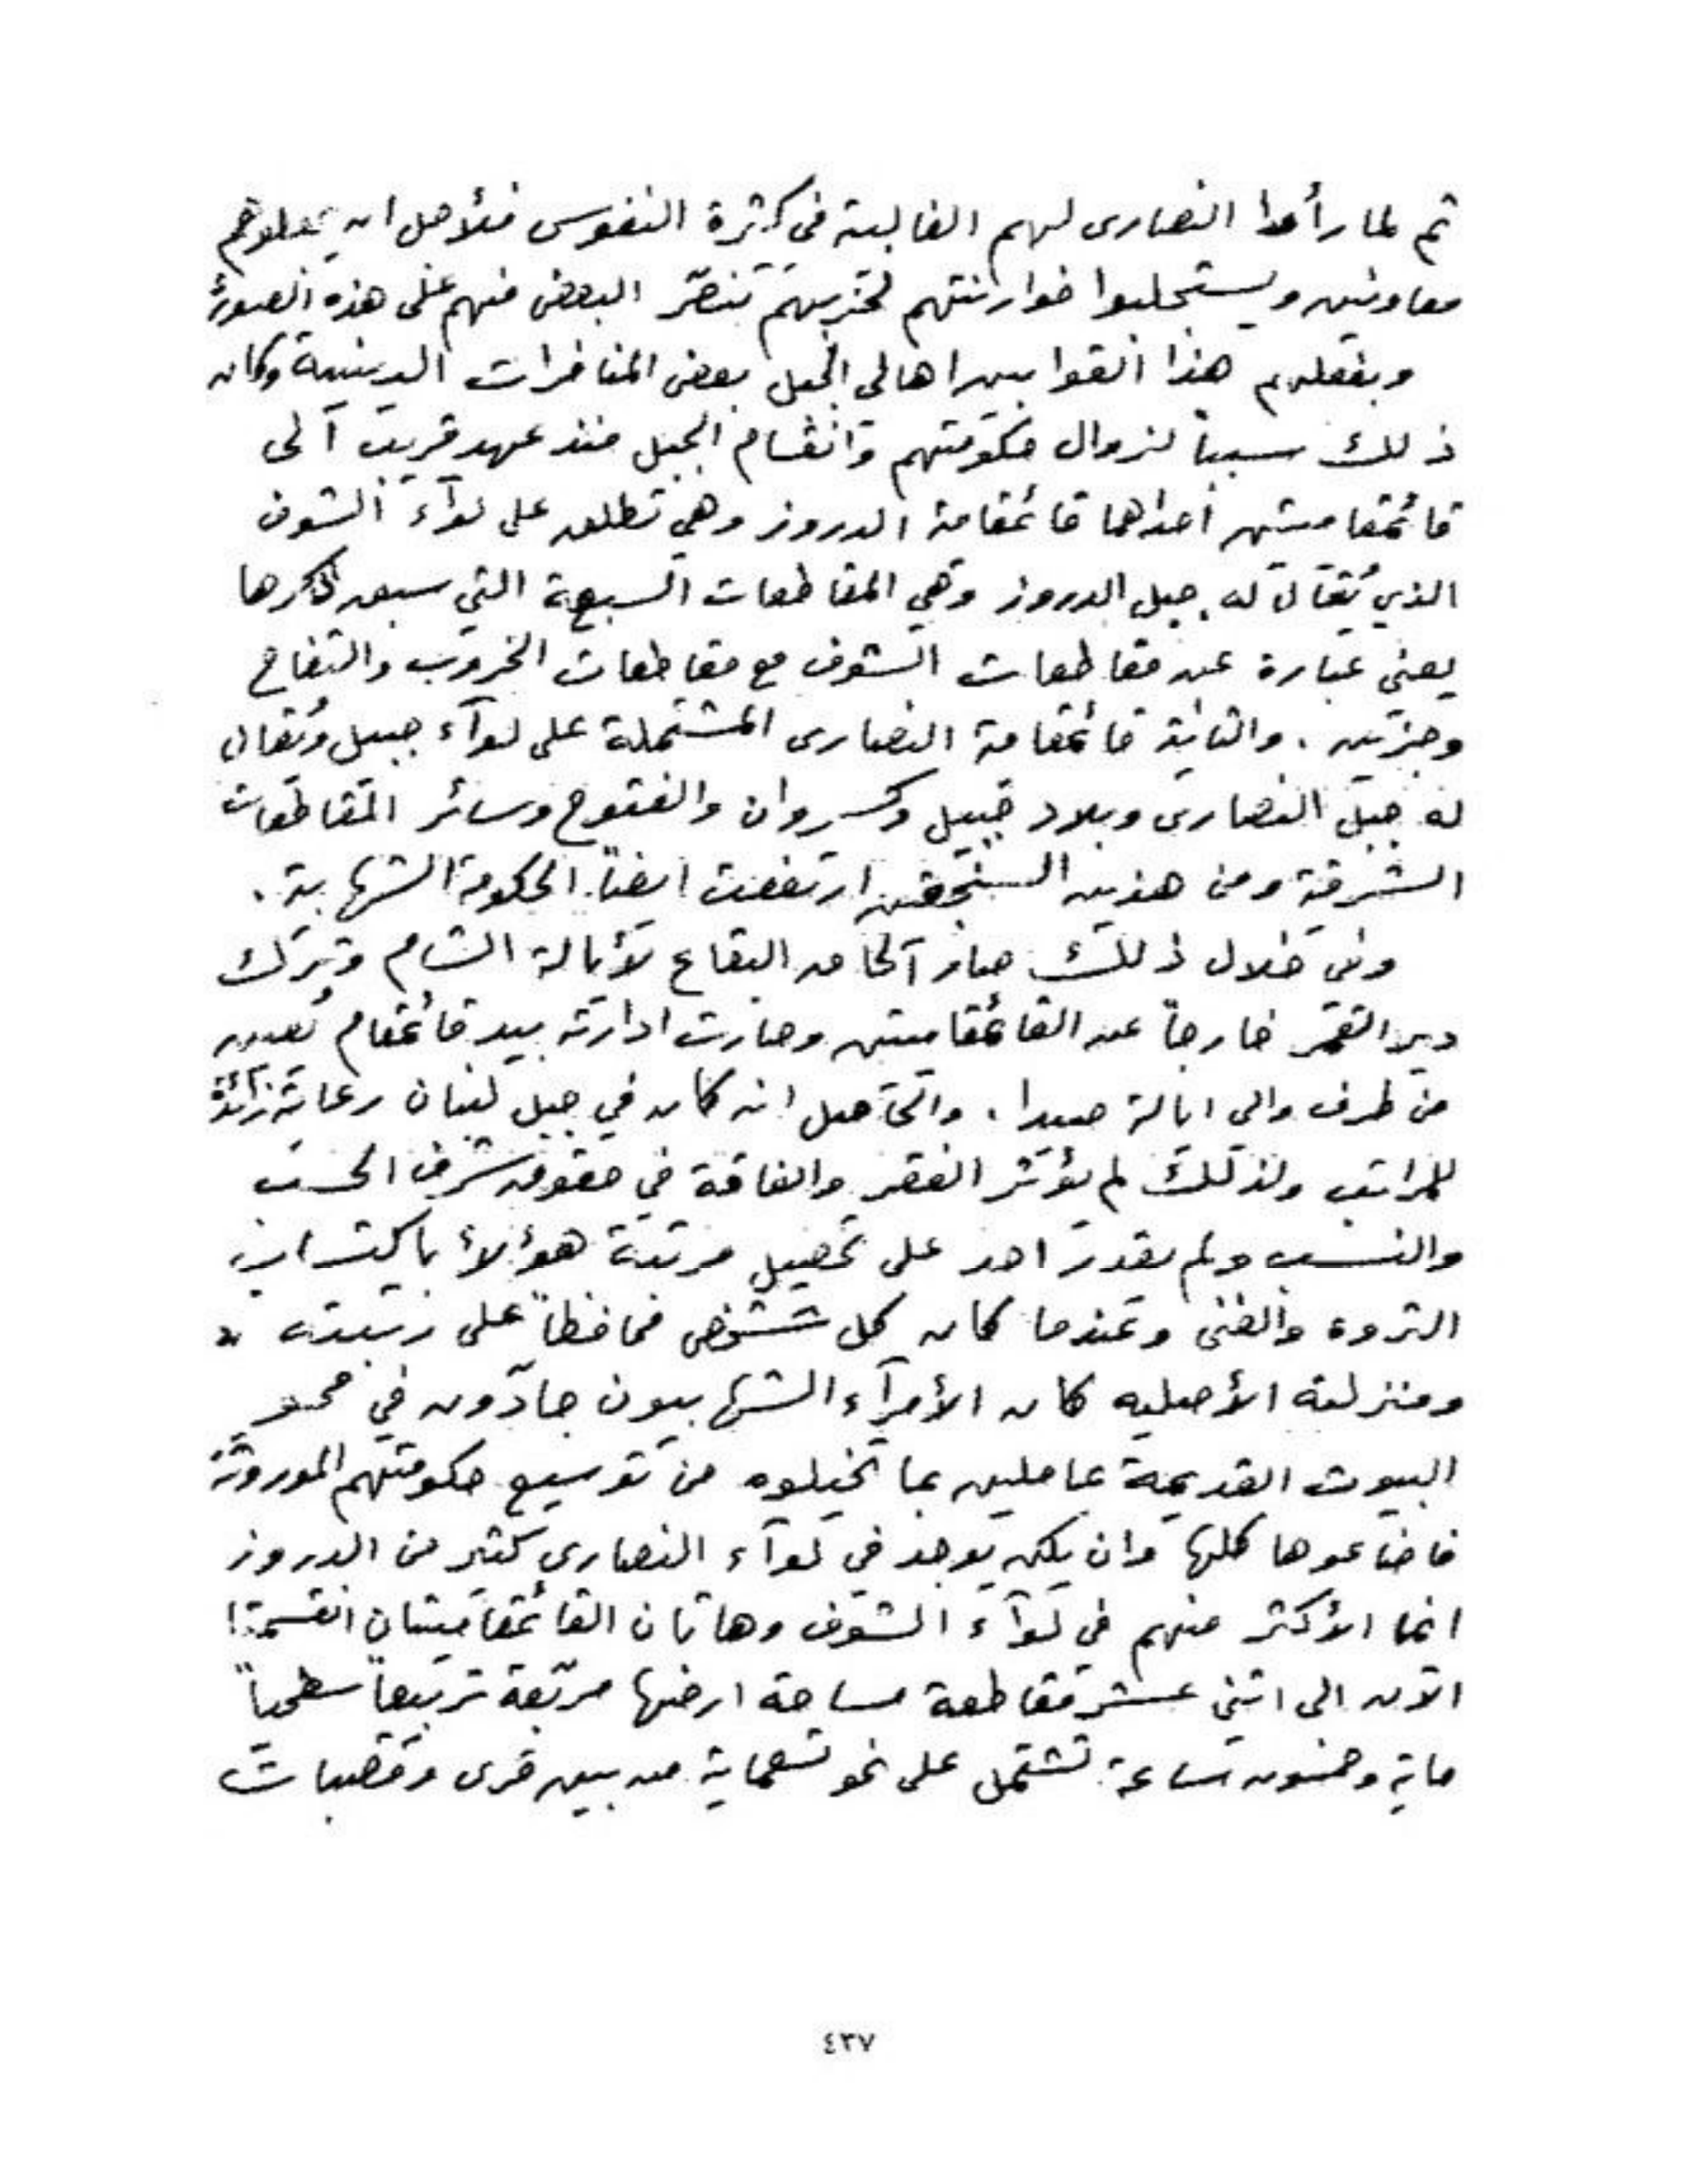 ثم لما رأوا النصارى لهم الغالبية في كثرة النفوس فلأجل ان يجعلوهم
معاونين ويستجلبوا خوارنتهم لحزبهم تنصّر البعض منهم على هذه الصورة
وبفعلهم هذا القوا بين اهالي الجبل بعض المنافرات الدينية وكان
ذلك سبباً لزوال حكومتهم وانقسام الجبل منذ عهد قريب الى
قائمقاميتين احداهما قائمقامية الدروز وهي تطلق على لوآء الشوف
الذي يُقال له جبل الدروز وهي المقاطعات السبعة التي سبق ذكرها
يعني عبارة عن مقاطعات الشوف مع مقاطعات الخروب والتفاح
وجزين . والثانية قائمقامية النصارى المشتملة على لوآء جبيل ويُقال
له جبل النصارى وبلاد جبيل وكسروان والفتوح وسائر المقاطعات
الشرقية ومن هذين السنجقين ارتفعت ايضاً الحكومة الشهابية .
وفي خلال ذلك صار الحاق البقاع لأيالة الشام وتُرك
دير القمر خارجاً عن القائمقاميتين وصارت ادارته بيد قائمقام يُعين
من طرف والي ايالة صيدا . والحاصل انه كان في جبل لبنان رعاية زائدة
للمراتب ولذلك لم يؤثر الفقر والفاقة في حقوق شرف الحسب
والنسب ولم يقدر احد على تحصيل مرتبة هؤلاء باكتساب
الثروة والغنى وعندما كان كل شخص محافظاً على رتبته
ومنزلته الأصليه كان الأمرآء الشهابيون جادّون في محو
البيوت القديمة عاملين بما تخيلوه من توسيع حكومتهم الموروثة
فاضاعوها كلها وان يكن يوجد في لوآء النصارى كثير من الدروز
انما الأكثر منهم في لوآء الشوف وهاتان القائمقاميتان انقسمتا
الآن الى اثني عشر مقاطعة مساحة ارضها مربّعة تربيعاً سطحياً
ماية وخمسون ساعة تشتمل على نحو تسعماية من بين قرى وقصبات
٤٣٧